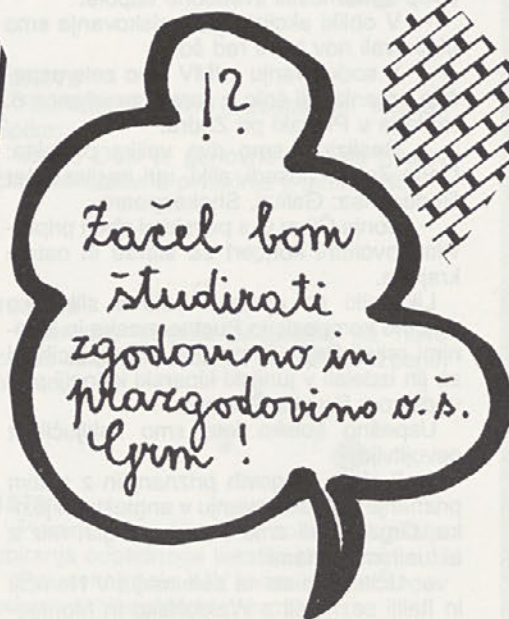 !?
Začel bom
študirati
zgodovino in
prazgodovino o.š.
Grm !